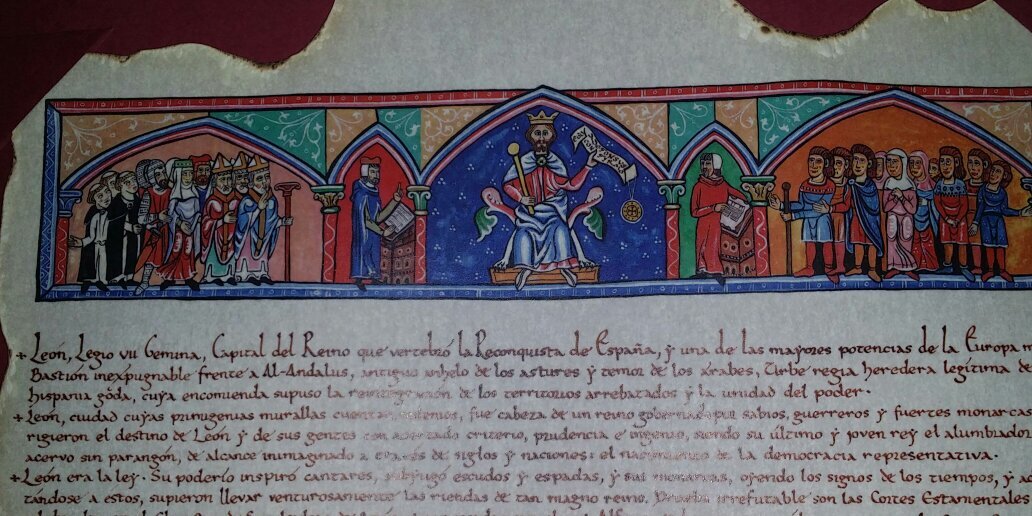 + León, Legio VII Gemina, Capital del Reino que vertebró la Reconquista de España, y una de las mayores potencias de la Europa m
Bastión inexpugnable frente a Al-Andalus, antiguo anhelo de los astures y temor de los árabes, Urbe regia heredera legítima de
hispania goda, cuya encomienda supuso la reintegración de los territorios arrebatados y la unidad del poder.
+ León, ciudad cuyas primigenias murallas cuentan, fue cabeza de un reino gobernado por sabios, guerreros y fuertes monarcas
rigieron el destino de León y de sus gentes con acertado criterio, prudencia e ingenio, siendo su último y joven rey el alumbrador
acervo sin parangón, de alcance inimaginado a través de siglos y naciones: el nacimiento de la democracia representativa.
+ León era la ley. Su poderío inspiró cantares, subyugó escudos y espadas, y sus monarcas, oyendo los signos de los tiempos, y a
tándose a estos, supieron llevar venturosamente las riendas de tan magno reino. Prueba irrefutable son las Cortes Estamentales